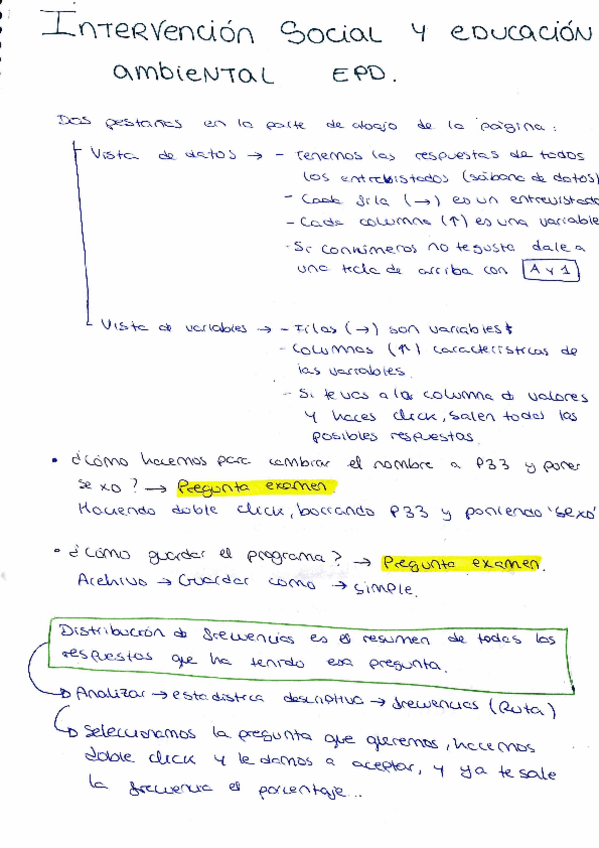 INTERVENCIÓN SOCIAL Y EDUCACIÓN
AMBIENTAL EPD.
Dos pestañas en la parte de abajo de la página:
Vista de datos → - Tenemos las respuestas de todos
los entrebistados (sábana de datos)
- Cada fila (→) es un entrevistado
- Cada columna (↑) es una variable
- Si connúmeros no te gusta dale a
una tecla de arriba con A y 1
Vista d variables → - Filas (→) son variables
- Columnas (↑) características de
las variables.
- Si te vas a la columna d valores
y haces click, salen todas las
posibles respuestas.
• ¿Cómo hacemos para cambiar el nombre a P33 y poner
sexo? → Pregunta examen.
Haciendo doble click, borrando P33 y poniendo 'sexo'
• ¿Cómo guardar el programa? → Pregunta examen.
Archivo → Guardar como → simple.
Distribución d frecuencias es el resumen de todas las
respuestas que ha tenido esa pregunta.
→ Analizar → estadística descriptiva → frecuencias (Ruta)
→ Seleccionamos la pregunta que queremos, hacemos
doble click y le damos a aceptar, y ya te sale
la frecuencia el porcentaje...